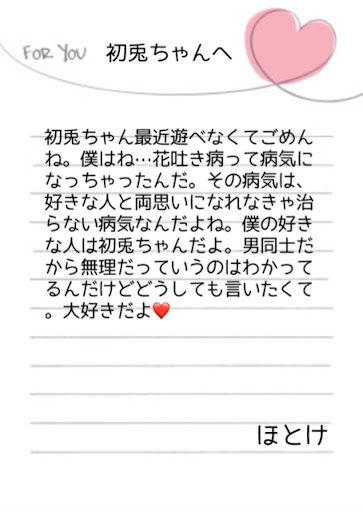 FOR YOU 初兎ちゃんへ
初兎ちゃん最近遊べなくてごめん
ね。僕はね…花吐き病って病気に
なっちゃったんだ。その病気は、
好きな人と両思いになれなきゃ治
らない病気なんだよね。僕の好き
な人は初兎ちゃんだよ。男同士だ
から無理だっていうのはわかって
るんだけどどうしても言いたくて
。大好きだよ❤️
ほとけ